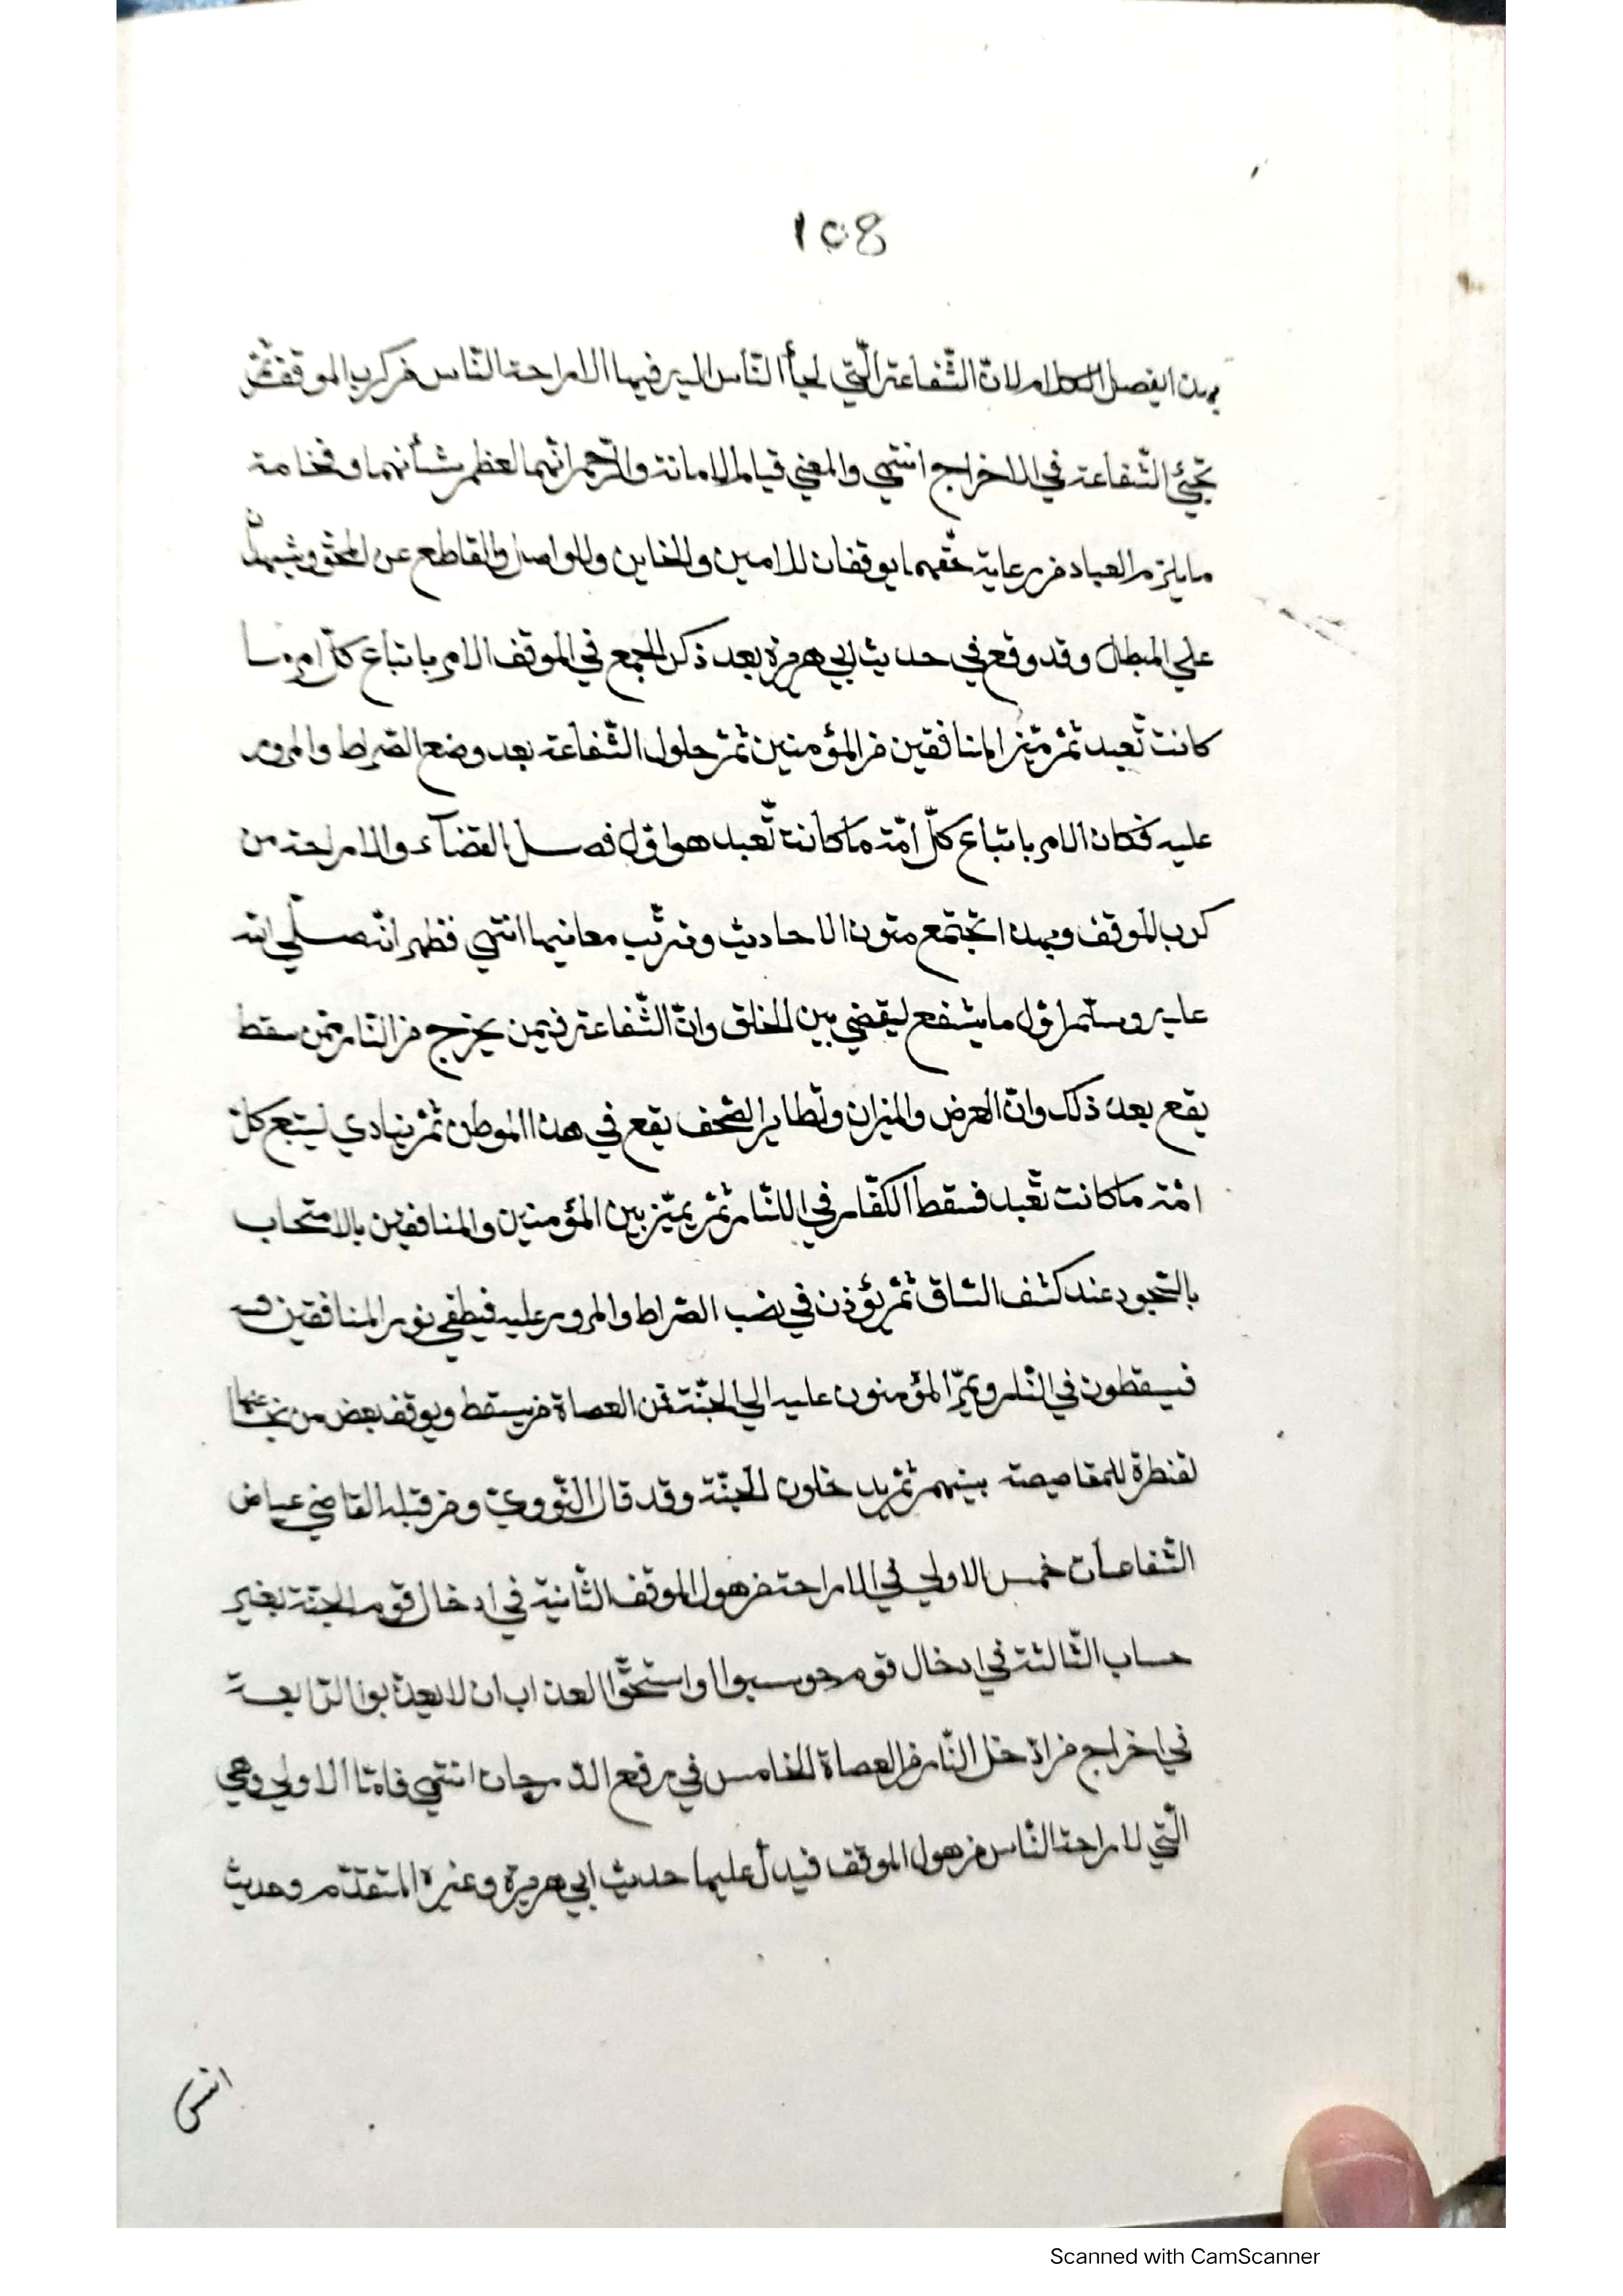 ١٥8
بهذا يفصل الكلام لانّ الشّفاعة الّتي لجأ النّاس اليه فيها الاراحة النّاس من كرب الموقف ثمّ
تجيئ الشّفاعة في الاخراج انتهي والمعني قيام الامانة والرّحم انّهما لعظم شأنهما وفخامة
مايلزم العباد من رعاية حقّهما يوقفان للامين والخاين وللواصل والقاطع عن المحقّ ويشهد
علي المبطل وقد وقع في حديث ابي هريرة بعد ذكر الجمع في الموقف الامر باتباع كلّ امة ما
كانت تّعبد ثمّ تميّز المنافقين من المؤمنين ثمّ حلول الشّفاعة بعد وضع الصّراط والمرور
عليه فكان الامر باتباع كلّ امّة ما كانت تّعبد هو اوّل فصل القضآء والاراحة من
كرب الموقف وبهذا تجتمع متون الاحاديث وتترتّب معانيها انتهي فظهر انّه صلّي الله
عليه وسلّم اوّل ما يشفع ليقضي بين الخلق وانّ الشّفاعة فيمن يخرج من النّار ممّن سقط
يقع بعد ذلك وانّ العرض والميزان وتطاير الصّحف يقع في هذا الموطن ثمّ ينادي ليتبع كلّ
امّة ما كانت تّعبد فسقط الكفّار في النّار ثمّ يميّز بين المؤمنين والمنافقين بالامتحان
بالسّجود عند كشف السّاق ثمّ يؤذن في نصب الصّراط والمرور عليه فيطفي نور المنافقين
فيسقطون في النّار ويمرّ المؤمنون عليه الي الجنّة فمن العصاة من يسقط ويوقف بعض من نجا عند
لقنطرة للمقاصصة بينهم ثمّ يدخلون الجنّة وقد قال النّوويّ ومن قبله القاضي عياض
الشّفاعات خمس الاولي في الاراحة من هول الموقف الثّانية في ادخال قوم الجنّة بغير
حساب الثّالثة في ادخال قوم حوسبوا واستحقّوا العذاب ان لا يعذّبوا الرّابعة
في اخراج من ادخل النّار من العصاة الخامس في رفع الدّرجات انتهي فامّا الاولي وهي
الّتي لاراحة النّاس من هول الموقف فيدلّ عليها حديث ابي هريرة وغيره المتقدّم وحديث
انس
Scanned with CamScanner